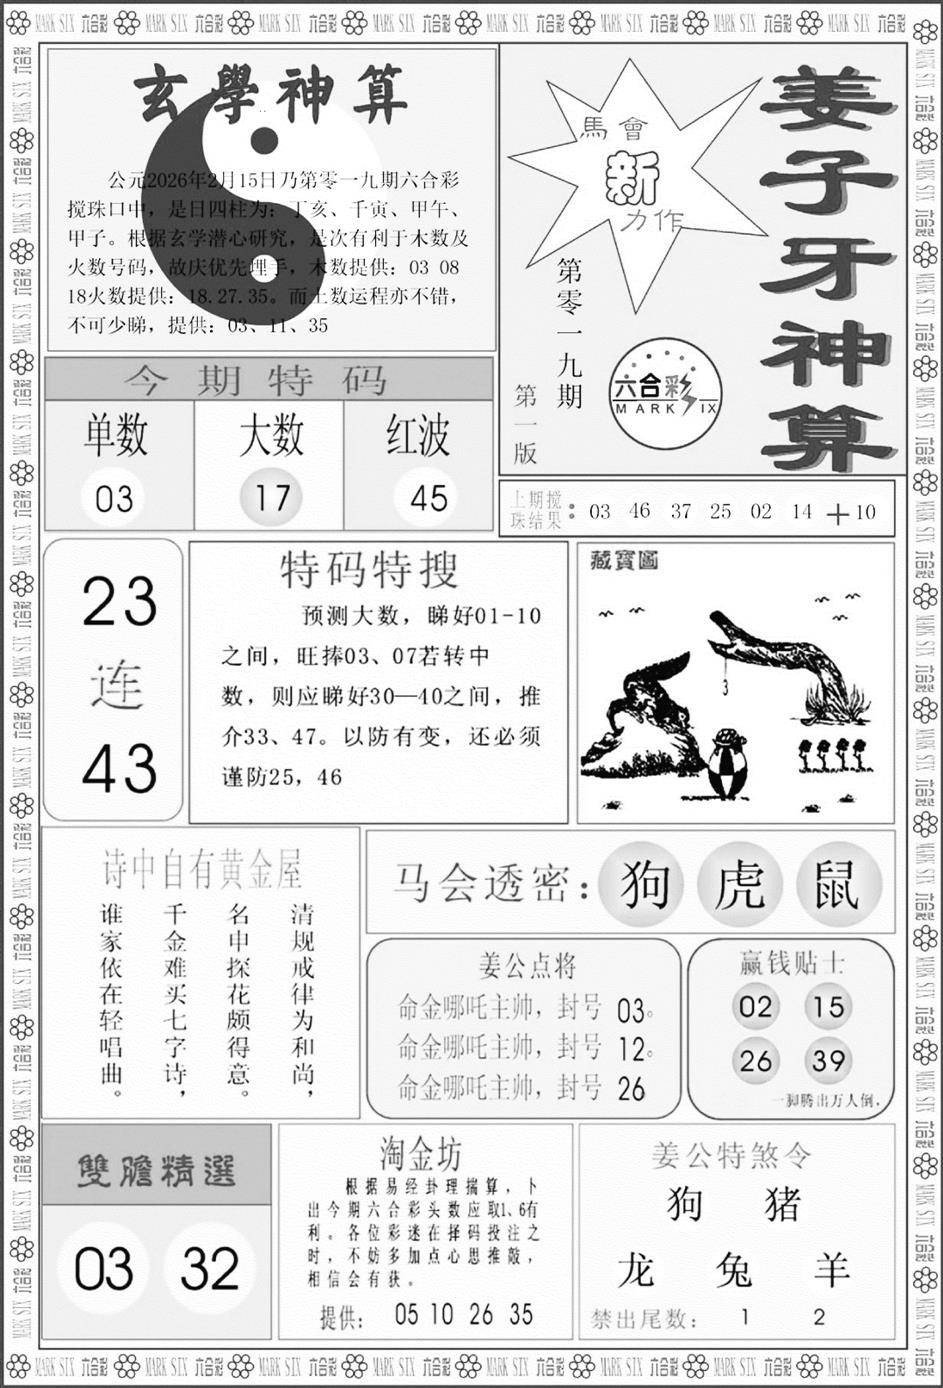 玄學神算
公元2026年2月15日乃第零一九期六合彩
搅珠口中，是日四柱为：丁亥、千寅、甲午、
甲子。根据玄学潜心研究，是次有利于木数及
火数号码，故庆优先埋手，木数提供：03 08
18火数提供：18.27.35。而土数运程亦不错，
不可少睇，提供：03、11、35
馬會
新
力作
第零一九期
第一版
六合彩
MARK SIX
姜子牙神算
今期特码
单数 大数 红波
03 17 45
上期搅
珠结果：03 46 37 25 02 14 +10
23
连
43
特码特搜
预测大数，睇好01-10
之间，旺捧03、07若转中
数，则应睇好30—40之间，推
介33、47。以防有变，还必须
谨防25，46
藏寶圖
3
诗中自有黄金屋
清规戒律为和尚，
名申探花颇得意。
千金难买七字诗，
谁家依在轻唱曲。
马会透密：狗 虎 鼠
姜公点将
命金哪吒主帅，封号 03。
命金哪吒主帅，封号 12。
命金哪吒主帅，封号 26
赢钱贴士
02 15
26 39
一脚腾出万人倒．
雙膽精選
03 32
淘金坊
根据易经卦理揣算，卜
出今期六合彩头数应取1、6有
利。各位彩迷在择码投注之
时，不妨多加点心思推敲，
相信会有获。
提供： 05 10 26 35
姜公特煞令
狗 猪
龙 兔 羊
禁出尾数： 1 2